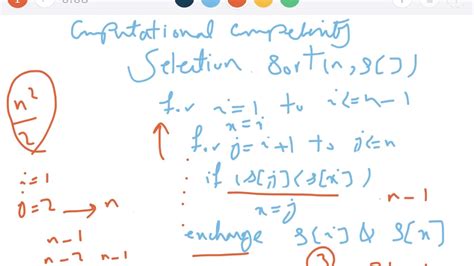 Computational complexity
Selection Sort(n, S[])
for i=1 to i<=n-1
x=i
for j=i+1 to j<=n
if (S[j]<S[x])
x=j
exchange S[i] & S[x]
n²
2
i=1
j=2 → n
n-1
n-2 n-1
n-1
3